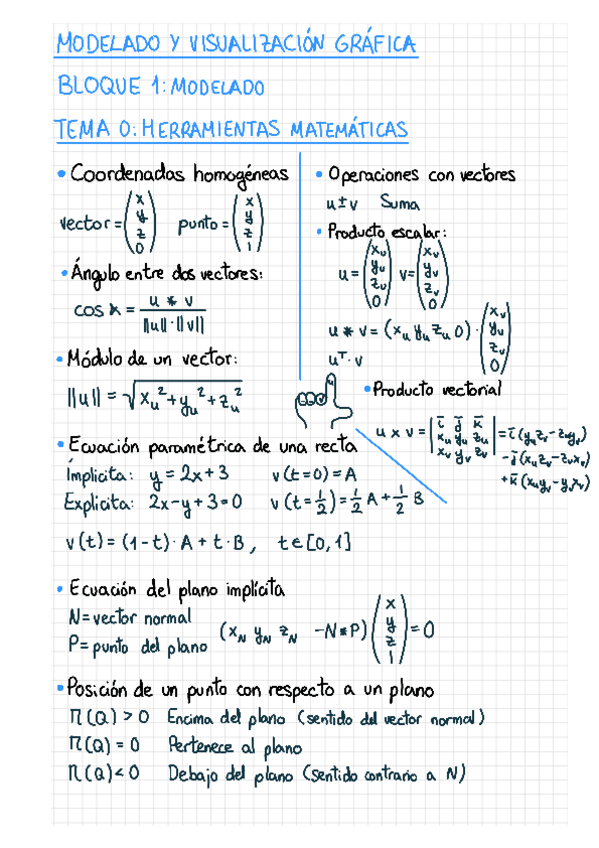 MODELADO Y VISUALIZACIÓN GRÁFICA
BLOQUE 1: MODELADO
TEMA 0: HERRAMIENTAS MATEMÁTICAS
• Coordenadas homogéneas
vector = (x y z 0) punto = (x y z 1)
• Ángulo entre dos vectores:
cos α = u * v / ||u||·||v||
• Módulo de un vector:
||u|| = √(x_u² + y_u² + z_u²)
• Operaciones con vectores
u ± v Suma
• Producto escalar:
u = (x_u y_u z_u 0) v = (x_v y_v z_v 0)
u * v = (x_u y_u z_u 0) · (x_v y_v z_v 0)
u^T · v
• Producto vectorial
u x v = | i j k | = i (y_u z_v - z_u y_v)
| x_u y_u z_u | - j (x_u z_v - z_u x_v)
| x_v y_v z_v | + k (x_u y_v - y_u x_v)
• Ecuación paramétrica de una recta
Implicita: y = 2x + 3 v(t=0) = A
Explicita: 2x - y + 3 = 0 v(t = 1/2) = 1/2 A + 1/2 B
v(t) = (1 - t) · A + t · B , t ∈ [0, 1]
• Ecuación del plano implícita
N = vector normal
P = punto del plano
(x_N y_N z_N -N*P) (x y z 1) = 0
• Posición de un punto con respecto a un plano
π(Q) > 0 Encima del plano (sentido del vector normal)
π(Q) = 0 Pertenece al plano
π(Q) < 0 Debajo del plano (sentido contrario a N)